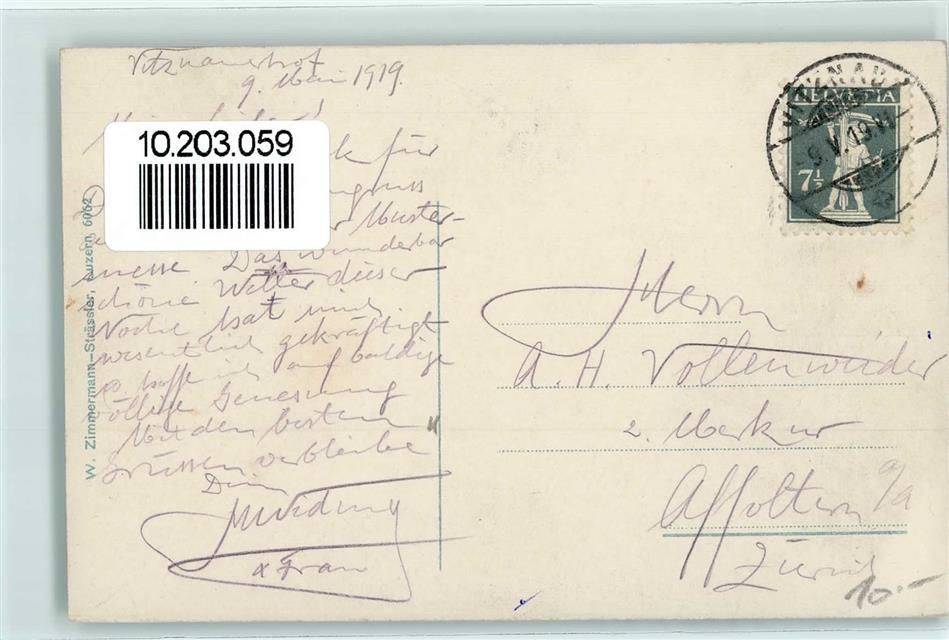 Vitznauerhof
9. Mai 1919.
10.203.059
für
Muster-
messe Das wunderbar
schöne Wetter dieser
Woche hat mich
wesentlich gekräftigt
& hoffe ich auf baldige
völlige Genesung
Mit den besten
Grüssen verbleibe
Dein
& Frau
W. Zimmermann-Strässler, Luzern 6062
VITZNAU
9.V.19.VI
HELVETIA
7½
Herrn
A. H. Vollenweider
z. Merkur
Affoltern a/a
Zürich
10.-